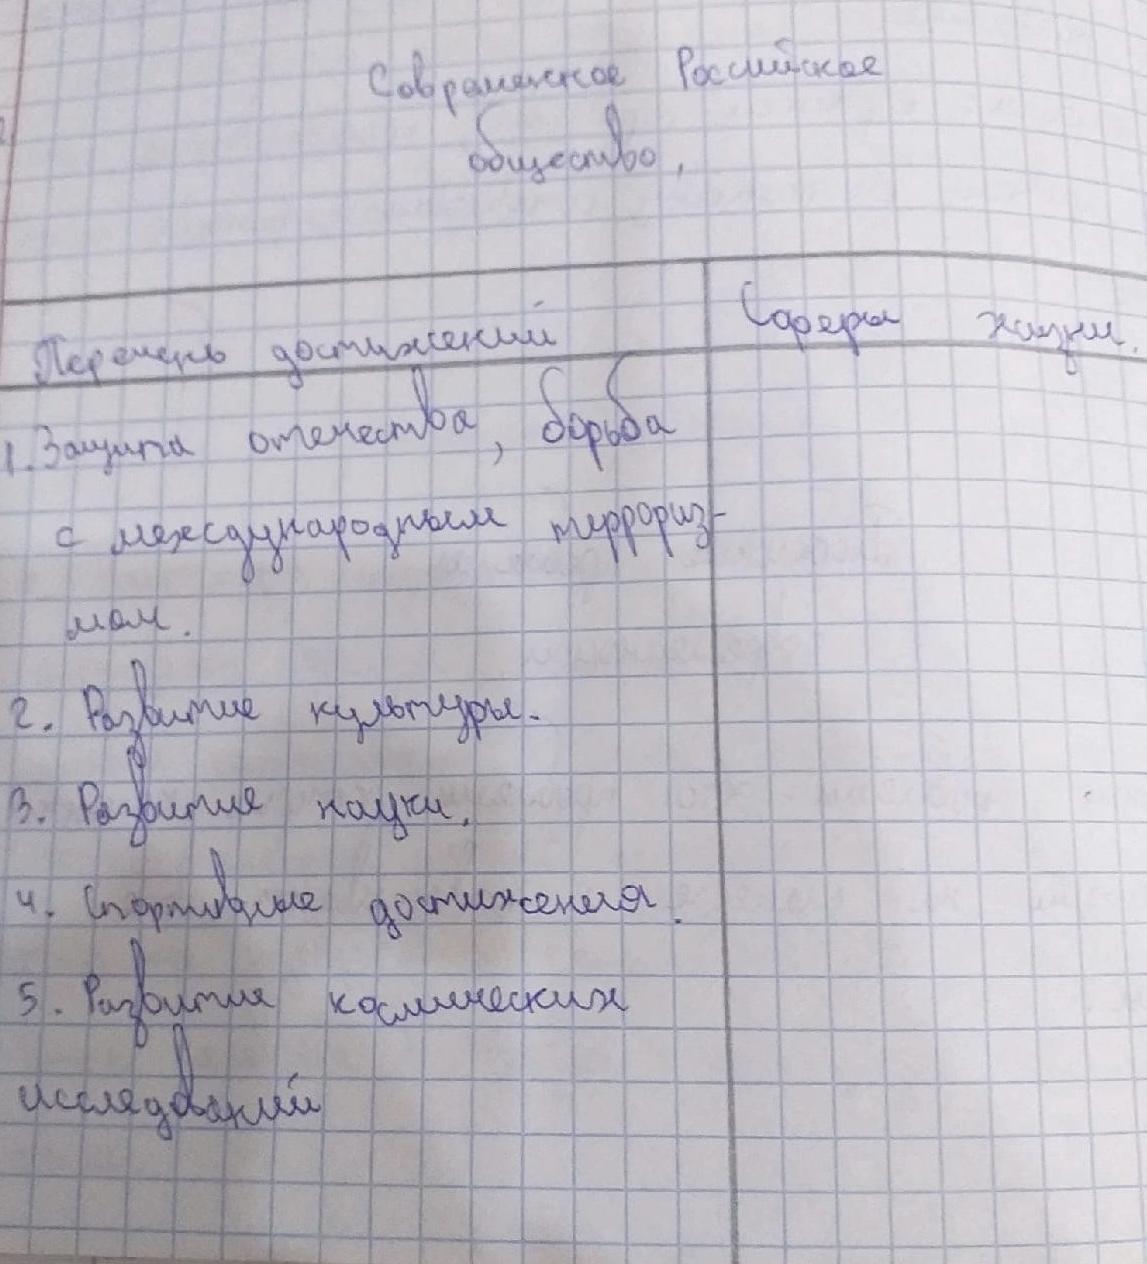 Современское Российское
общество,
Перечень достижений
Сферы жизни.
1. Защита отечества, борьба
с международным террориз-
мом.
2. Развитие культуры.
3. Развитие науки.
4. Спортивные достижения.
5. Развитие космических
исследований